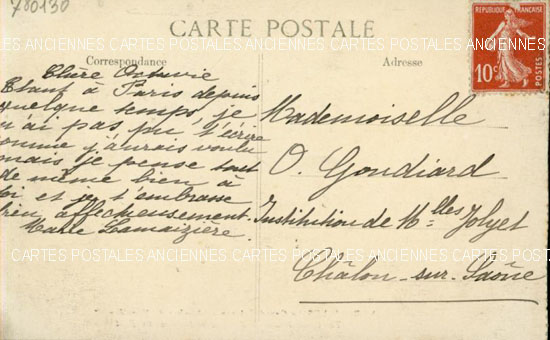 780130
CARTE POSTALE
REPUBLIQUE FRANÇAISE
10c
POSTES
CARTES POSTALES ANCIENNES CARTES POSTALES ANCIENNES CARTES POSTALES ANCIENNES
Correspondance
Chère Octavie
Etant à Paris depuis
quelque temps, je
n'ai pas pu t'écrire
comme j'aurais voulu
mais je pense tout
de même bien à
toi et je t'embrasse
bien affectueusement.
Lamaizière
Adresse
Mademoiselle
O. Goudiard
Institution de Melles Jolyet
Châlon-sur-Saône
CARTES POSTALES ANCIENNES CARTES POSTALES ANCIENNES CARTES POSTALES ANCIENNES